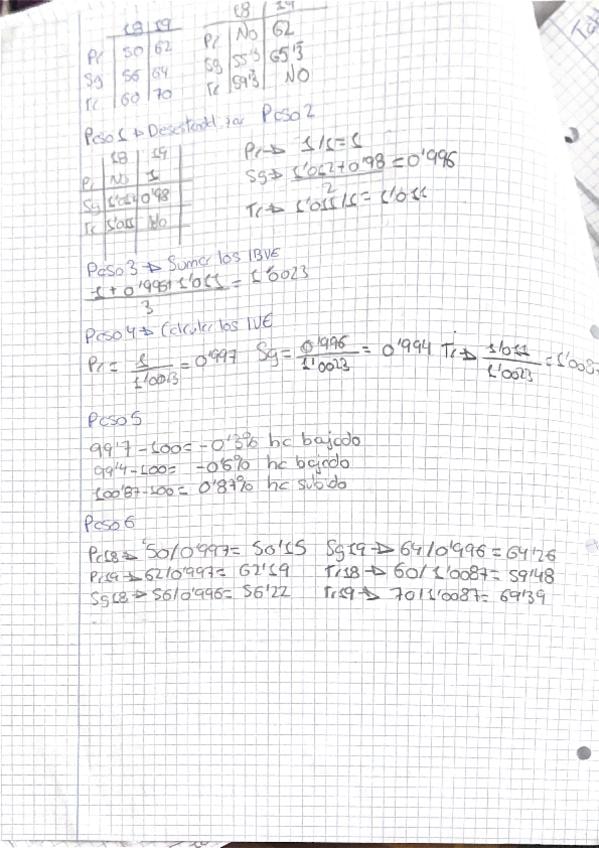 18 19
Pr 50 62
Sg 56 64
Tr 60 70
18 19
Pr No 62
Sg 55'3 65'3
Tr 59'3 NO
Paso 1 → Desestacional Paso 2
18 19
Pr No 1
Sg 1'012 0'98
Tr 1'011 No
Pr → 1/1 = 1
Sg → 1'012 + 0'98 / 2 = 0'996
Tr → 1'011/1 = 1'011
Paso 3 → Sumar los IBVE
1 + 0'996 + 1'011 / 3 = 1'0023
Paso 4 → Calcular los IVE
Pr = 1 / 1'0023 = 0'997 Sg = 0'996 / 1'0023 = 0'994 Tr → 1'011 / 1'0023 = 1'0087
Paso 5
99'7 - 100 = -0'3% ha bajado
99'4 - 100 = -0'6% ha bajado
100'87 - 100 = 0'87% ha subido
Paso 6
Pr18 → 50/0'997 = 50'15 Sg19 → 64/0'996 = 64'26
Pr19 → 62/0'997 = 62'19 Tr18 → 60/1'0087 = 59'48
Sg18 → 56/0'996 = 56'22 Tr19 → 70/1'0087 = 69'39